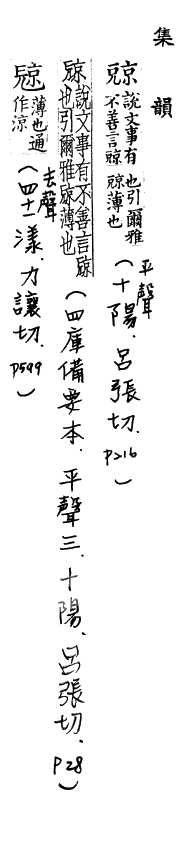 集韻
𣄴說文事有不善言𣄴也引爾雅𣄴薄也(平聲十陽.呂張切.p216)
𣄴說文事有不善言𣄴也引爾雅𣄴薄也(四庫備要本.平聲三.十陽.呂張切.p28)
薄也通作涼(去聲四十一漾.力讓切.p599)